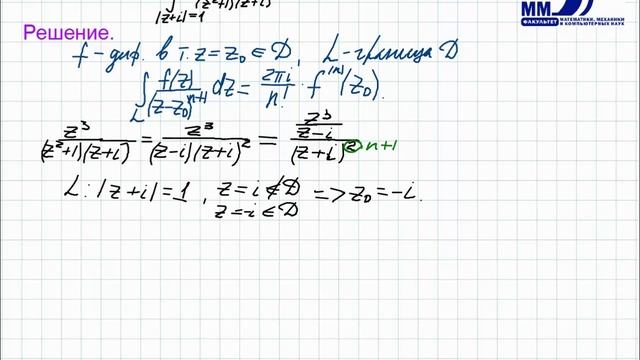 ∫ |z+i|=1 (z²+1)(z+i)
Решение.
f - диф. в т. z = z₀ ∈ D, L - граница D
∫_L f(z)/(z-z₀)ⁿ⁺¹ dz = 2πi/n! · f⁽ⁿ⁾(z₀).
z³/((z²+1)(z+i)) = z³/((z-i)(z+i)²) = (z³/(z-i))/(z+i)² n+1
L: |z+i|=1, z=i ∉ D => z₀=-i.
z=-i ∈ D
ММ
ФАКУЛЬТЕТ
МАТЕМАТИКИ, МЕХАНИКИ
И КОМПЬЮТЕРНЫХ НАУК